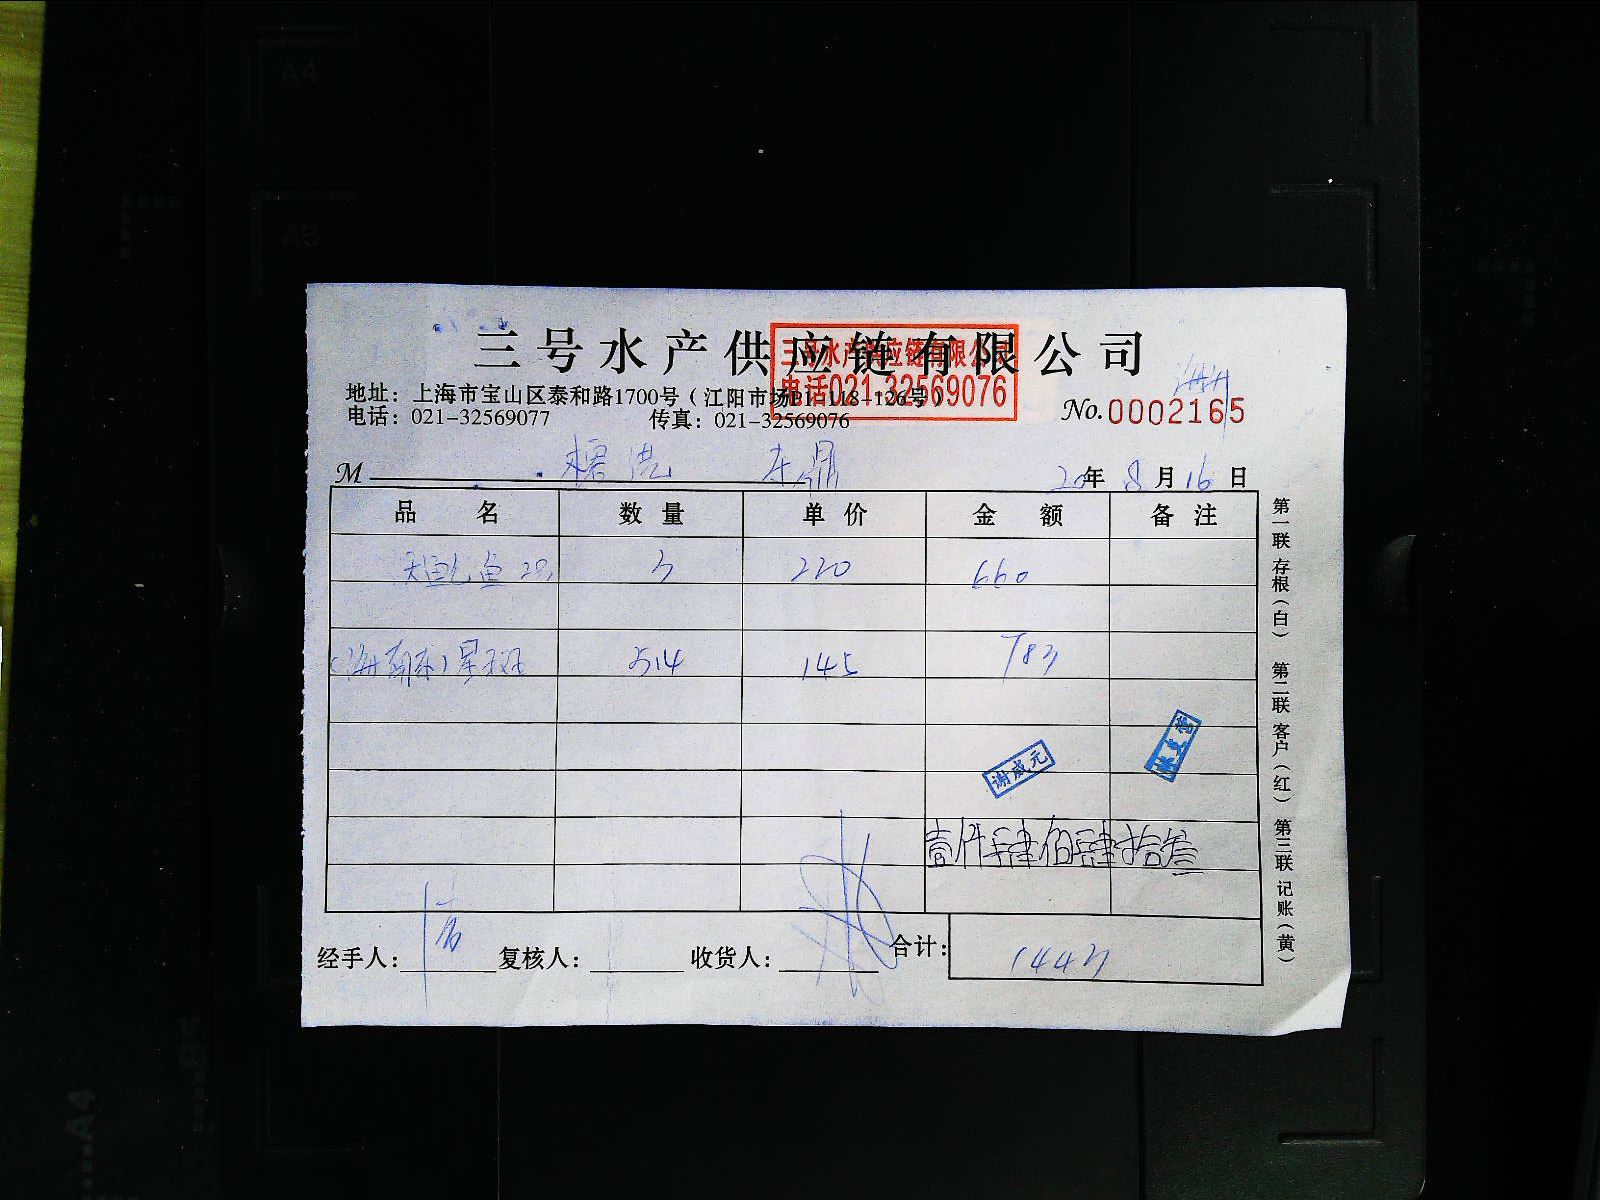 三号水产供应链有限公司
三号水产供应链有限公司
电话021-32569076
地址：上海市宝山区泰和路1700号（江阳市场B1-118-126号）
电话：021-32569077 传真：021-32569076
No.0002165
M
20年 8月16日
品名 数量 单价 金额 备注
鱼 3 220 660
（海南东）星斑 5.4 145 783
谢咸元
壹仟肆佰肆拾叁
经手人： 复核人： 收货人： 合计： 1443
第一联 存根（白） 第二联 客户（红） 第三联 记账（黄）
A4
A5
A4